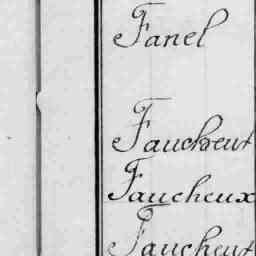 Fanel
Faucheux
Faucheux
Faucheux